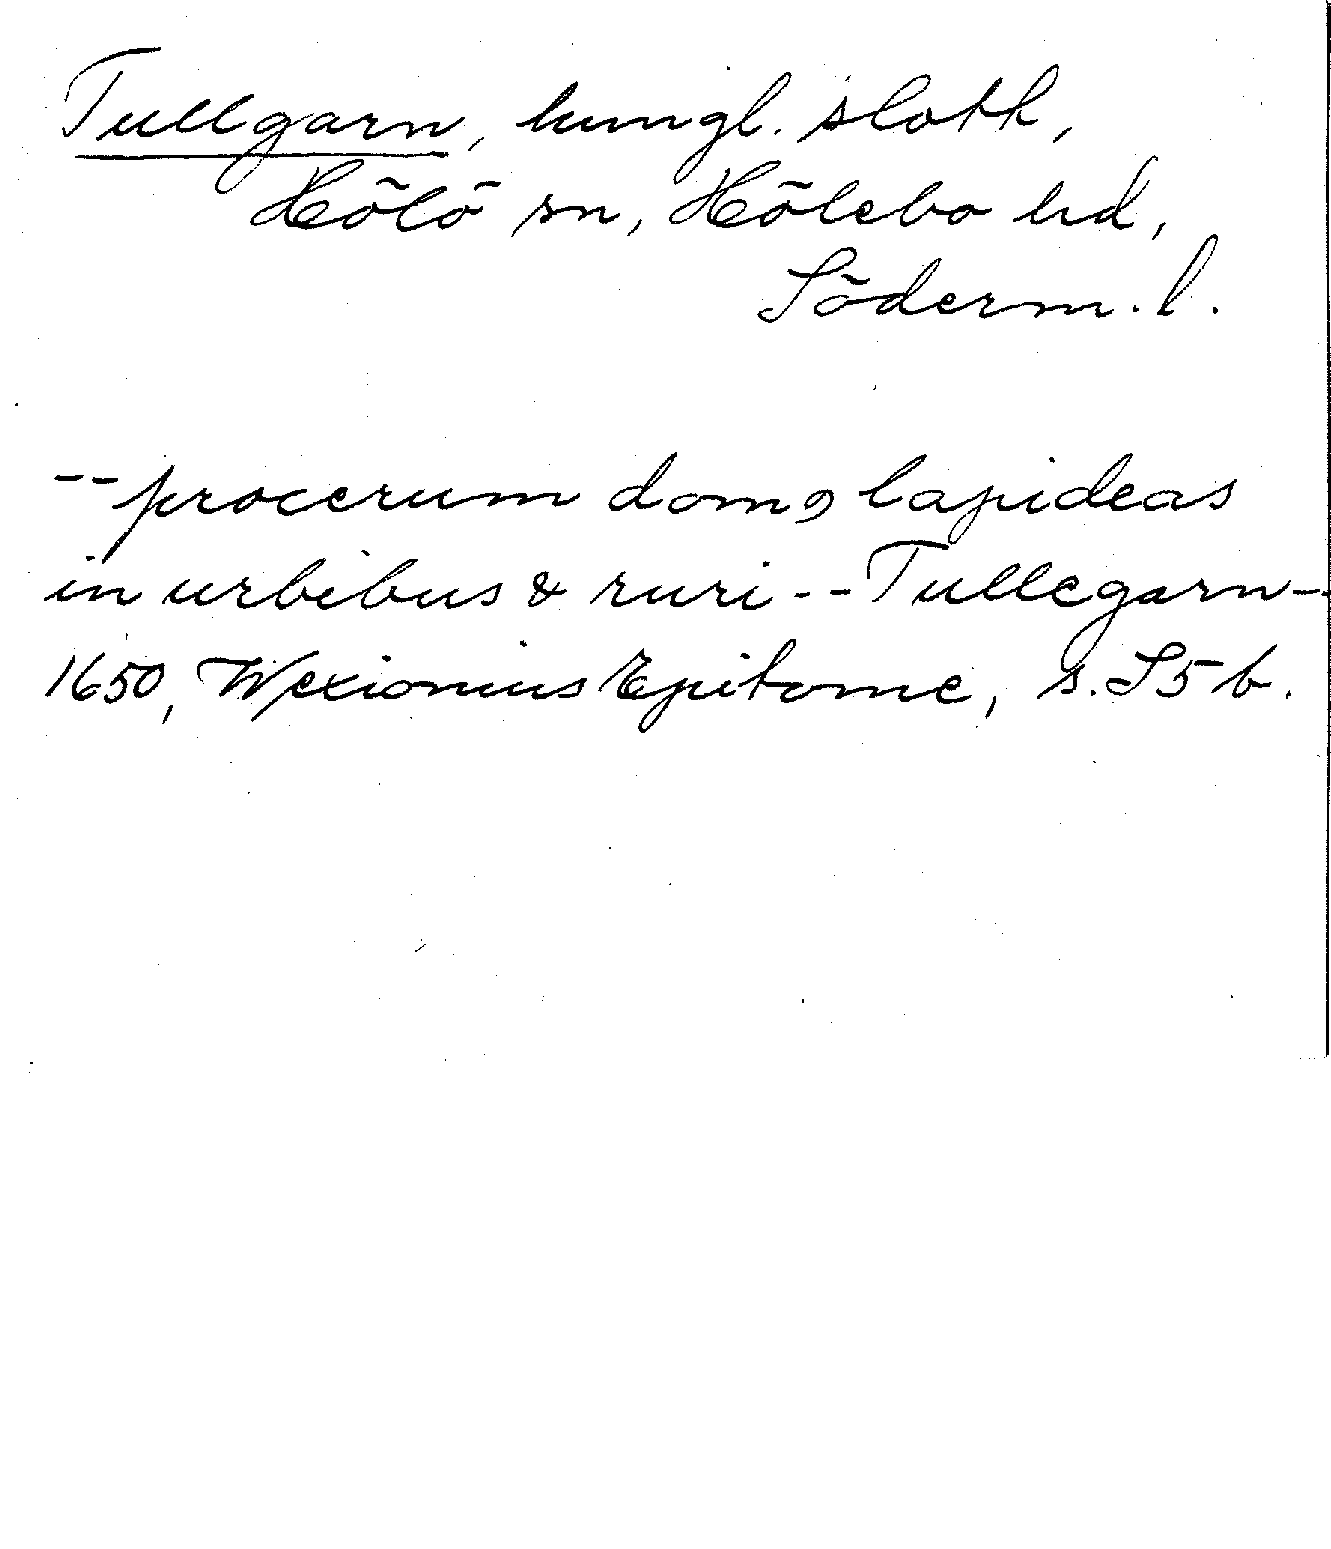 Tullgarn, kungl. slott,
Hölö sn, Hölebo hd,
Söderm. l.
-- procerum domꝯ lapideas
in urbibus & ruri -- Tullegarn --
1650, Wexionius Epitome, s. S5 b.